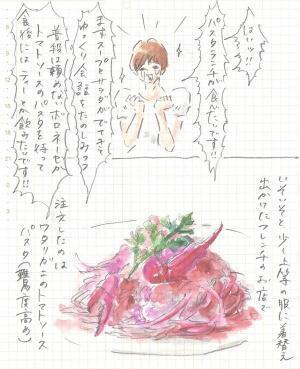 はいッ!!
パスタランチが食べたいです!!
まずスープとサラダがでてきて
ゆっくり会話をたのしみつつ
普段は頼めないボロネーゼか
トマトソースのパスタを待って
食後にはティーとか飲みたいです!!
いそいそと少し上等の服に着替え
出かけたフレンチのお店で
注文したのは
ワタリガニのトマトソース
パスタ(難易度高め)